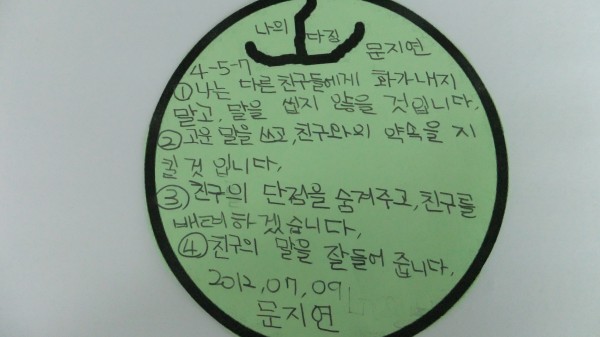 나의 다짐
문지연
4-5-7
①나는 다른 친구들에게 화가내지
말고, 말을 씹지 않을 것입니다.
②고운 말을 쓰고, 친구와의 약속을 지
킬 것 입니다.
③친구의 단점을 숨겨주고, 친구를
배려하겠습니다.
④친구의 말을 잘들어 줍니다.
2012.07.09
문지연